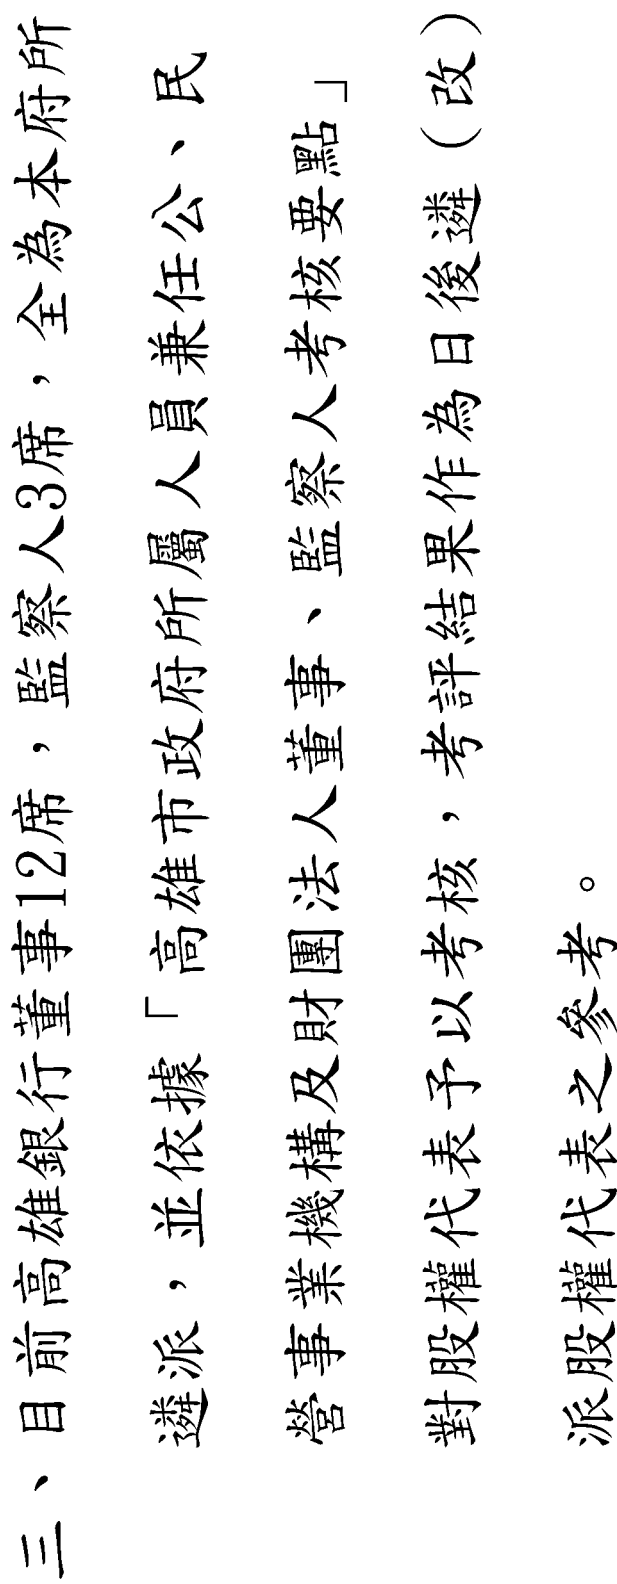 三、目前高雄銀行董事12席，監察人3席，全為本府所
遴派，並依據「高雄市政府所屬人員兼任公、民
營事業機構及財團法人董事、監察人考核要點」
對股權代表予以考核，考評結果作為日後遴（改）
派股權代表之參考。